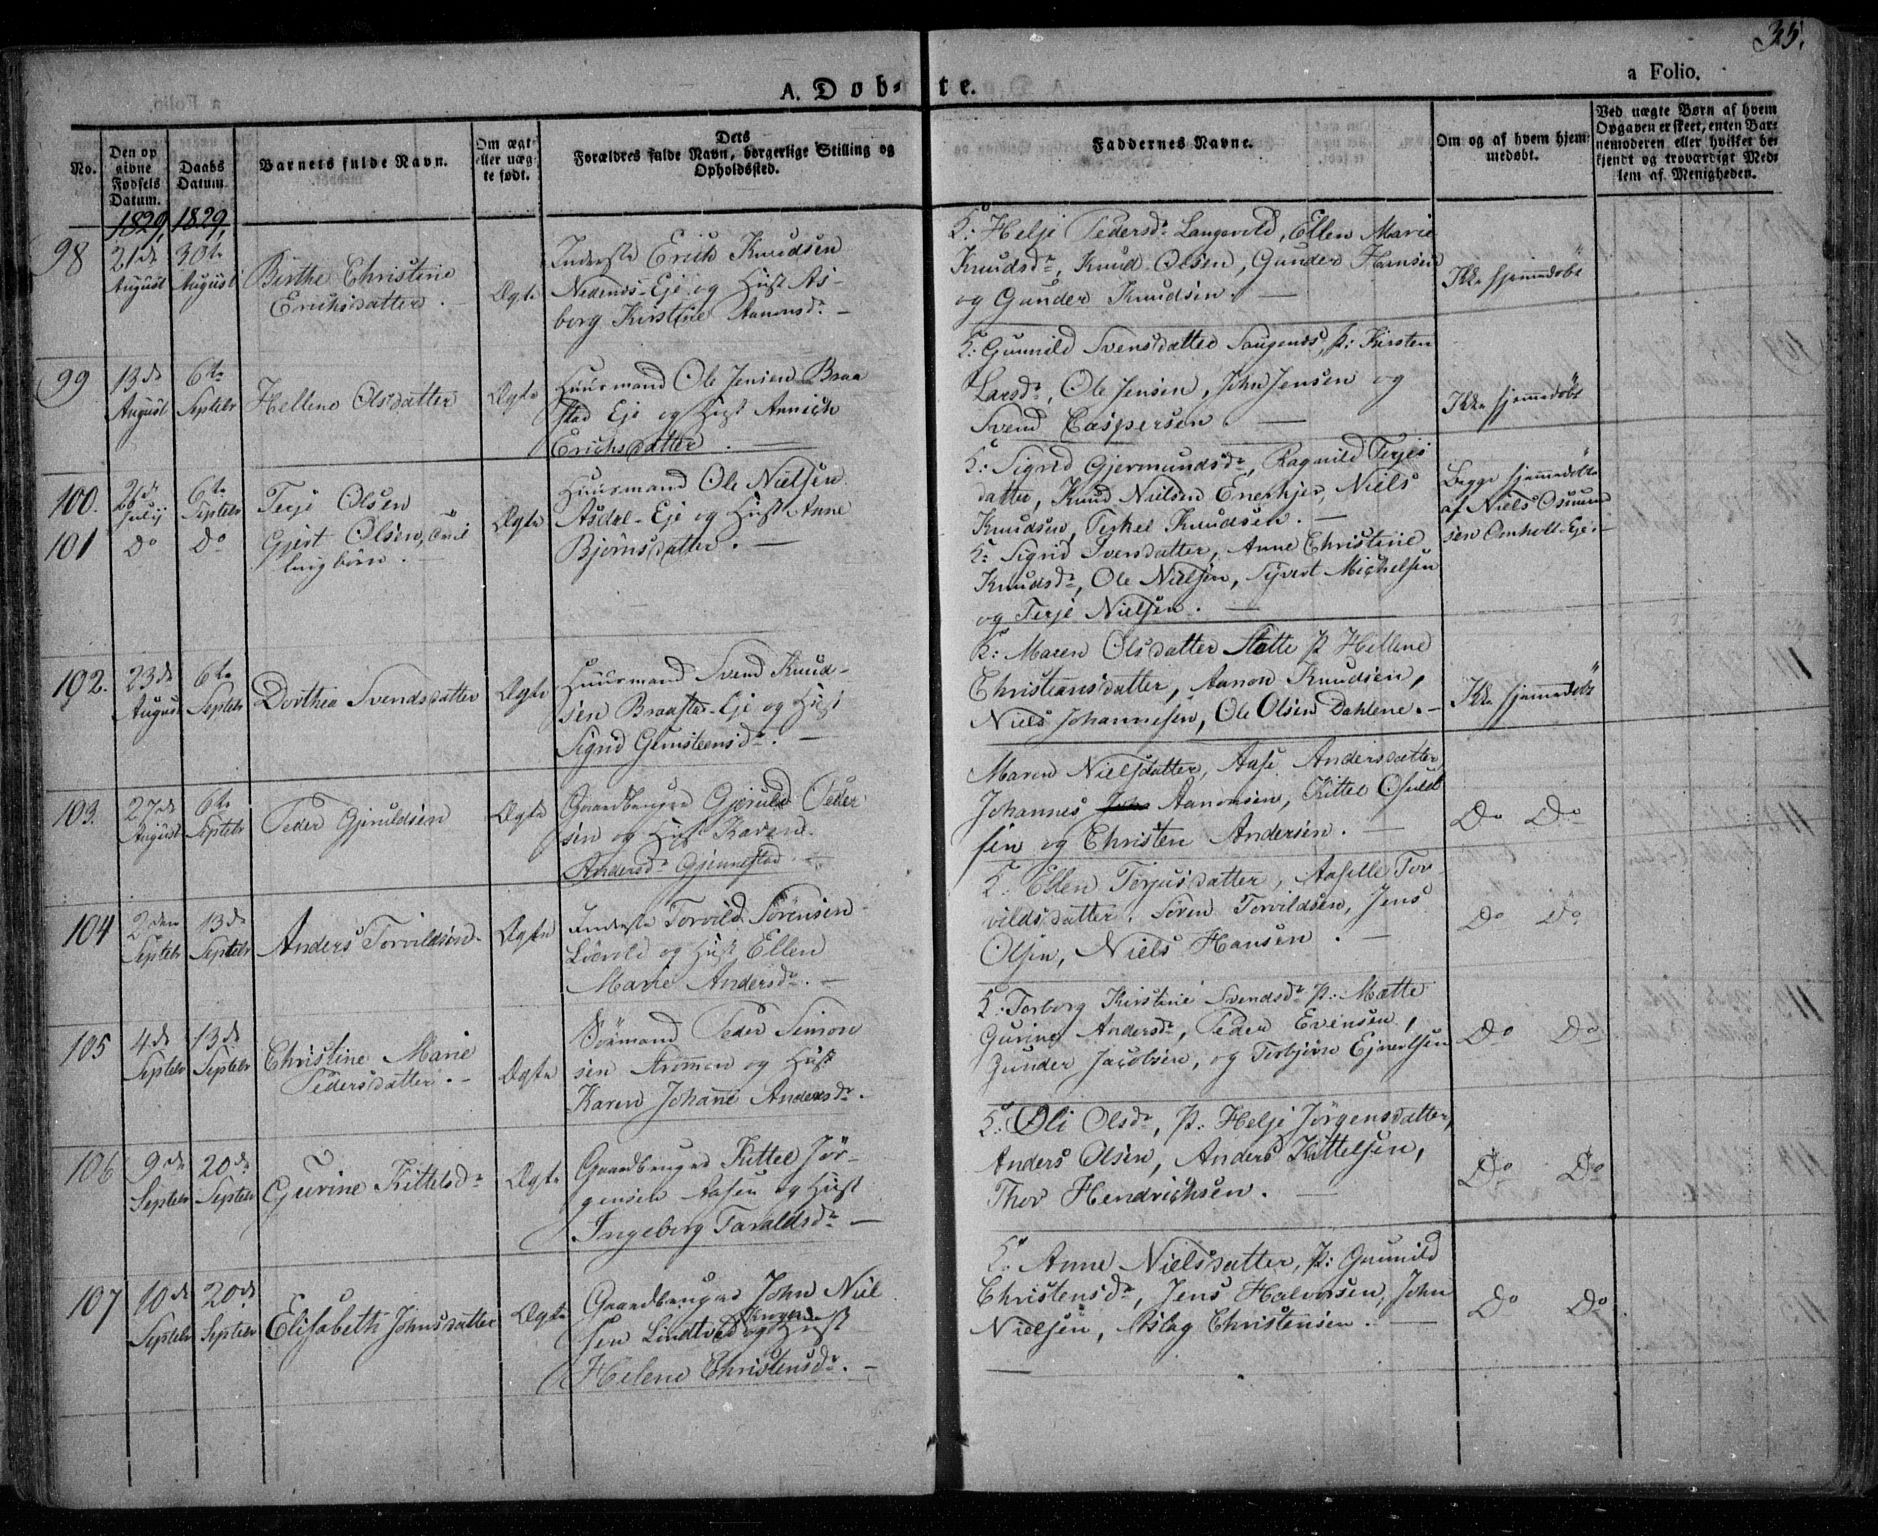 35.
a Folio.
A. Døb- te.
No.
Den op
givne
Fødsels
Datum.
Daabs
Datum
Barnets fulde Navn.
Om ægt
eller uæg-
te født.
Dets
Forældres fulde Navn, borgerlige Stilling og
Opholdssted.
Faddernes Navne.
Om og af hvem hjem-
medøbt.
Ved uægte Børn af hvem
Opgaven er skeet, enten Bar-
nemoderen eller hvilket be-
kjendt og troværdigt Med-
lem af Menigheden.
1829, 1829,
98
21de
August
30te
August
Birthe Christine
Erichsdatter.
Ægte
Inderste Erich Knudsen
Nedenes-Eje og Hust As-
borg Kirstine Aanonsdr. —
K: Helje Pedersdr. Langevold, Ellen Marie
Knudsdr, Knud Olsen, Gunder Hansen
og Gunder Knudsen. —
Ikke hjemmedøbt
99
13de
August
6te
Septebr
Hellene Olsdatter
Ægte
Huusmand Ole Jensen Braa
stad Eje og Hust Annich
Erichsdatter. —
K: Gunnild Svensdatter Saugenes, p: Kirsten
Larsdr, Ole Jensen, John Jensen og
Svend Caspersen. —
Ikke hjemmedøbt
100.
26de
July
6te
Septebr
Terje Olsen
101
Do
Do
Gjert Olsen, Tvil
lingbørn.
Ægte
Huusmand Ole Nielsen
Asdal-Eje og Hust Anne
Bjørnsdatter. —
K: Sigrid Gjermundsdr, Ragnild Terjes
datter, Knud Nielsen Enerhjer, Niels
Knudsen, Terkel Knudsen. —
K: Sigrid Iversdatter, Anne Christine
Knudsdr, Ole Nielsen, Syvert Michelsen
og Terje Nielsen. —
Begge hjemmedøbte
af Niels Osmun
sen Omholt-Eje. —
102.
23de
August
6te
Septebr
Dorthea Svendsdatter
Ægte
Huusmand Svend Knud-
sen Braastad-Eje og Hust
Sigrid Gunsteensdr. —
K: Maren Olsdatter Stølte p Hellene
Christiansdatter, Aanon Knudsen,
Niels Johannesen, Ole Olsen Dahlene. —
Ikke hjemmedøbt
103.
27de
August
6te
Septebr
Peder Gjeruldsen
Ægte
Gaardbruger Gjeruld Peder
sen og Hust Karen
Andersdr Gjennestad. —
Maren Nielsdatter, Aase Andersdatter,
Johannes Aanonsen, Kittel Osuld
sen og Christen Andersen. —
Do Do
104
2den
Septebr
13de
Septebr
Anders Torvildsen.
Ægte
Inderste Torvild Sørensen
Løvold og Hust Ellen
Marie Andersdr. —
K: Ellen Terjusdatter, Aaselle Tor-
vildsdatter. Søren Torvildsen, Jens
Olsen, Niels Hansen. —
Do Do
105
4de
Septebr
13de
Septebr
Christine Marie
Pedersdatter. —
Ægte
Sømand Peder Simon
sen Strømmen og Hust
Karen Johane Andersdr.
K: Torborg Kirstine Svendsdr p: Mætte
Gurine Andersdr, Peder Evensen,
Gunder Jacobsen, og Torbjørn Ejvertsen
Do Do
106
9de
Septebr
20de
Septebr
Gurine Kittelsdr
Ægte
Gaardbruger Kittel Jør-
gensen Aasen og Hust
Ingeborg Taraldsdr —
K: Oli Olsdr, p: Helje Jørgensdatter,
Anders Olsen, Anders Kittelsen,
Thor Hendrichsen. —
Do Do
107
10de
Septebr
20de
Septebr
Elisabeth Johnsdatter
Ægte
Gaardbruger John Niel
sen Lindtveð og Hust
Helene Christensdr. —
K: Anne Nielsdatter, p: Gunnild
Christensdr, Jens Halvorsen, John
Nielsen, Aslag Christensen. —
Do Do